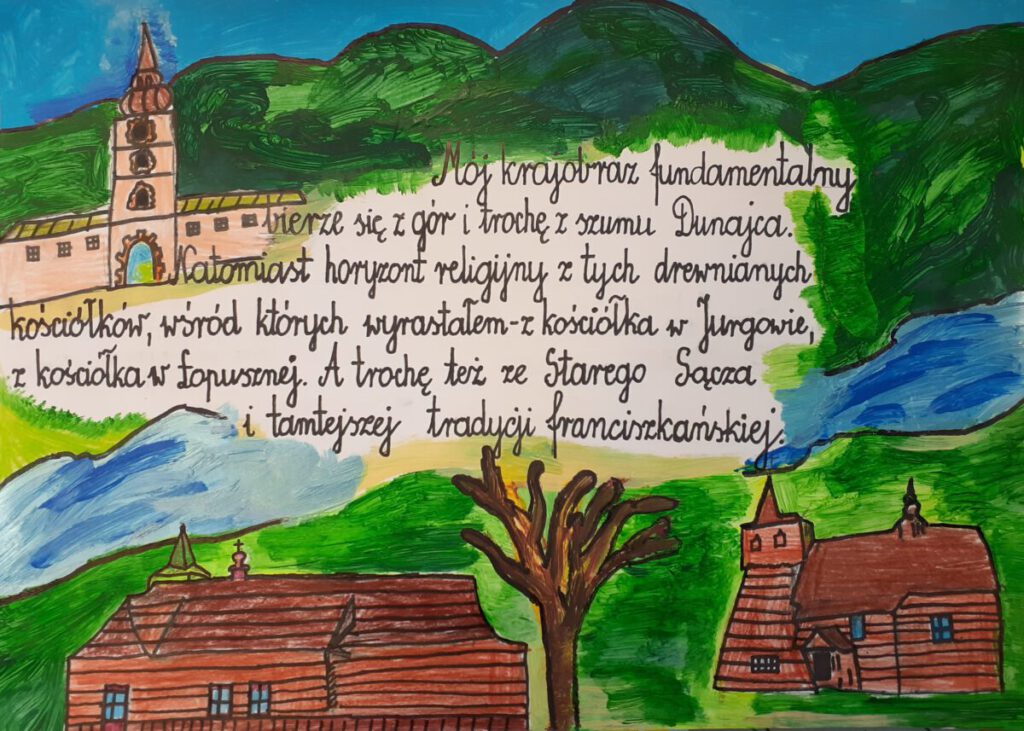 Mój krajobraz fundamentalny
bierze się z gór i trochę z szumu Dunajca.
Natomiast horyzont religijny z tych drewnianych
kościółków, wśród których wyrastałem-z kościółka w Jurgowie,
z kościółka w Łopusznej. A trochę też ze Starego Sącza
i tamtejszej tradycji franciszkańskiej.